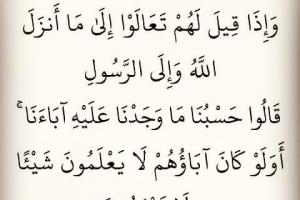 وَإِذَا قِيلَ لَهُمْ تَعَالَوْا إِلَىٰ مَا أَنزَلَ
اللَّهُ وَإِلَى الرَّسُولِ
قَالُوا حَسْبُنَا مَا وَجَدْنَا عَلَيْهِ آبَاءَنَا ۚ
أَوَلَوْ كَانَ آبَاؤُهُمْ لَا يَعْلَمُونَ شَيْئًا